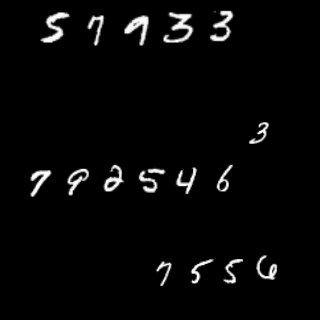 57933
3
792546
7556